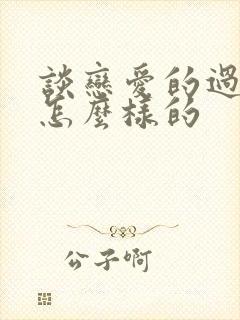 談戀愛的過
怎麼樣的
公子啊